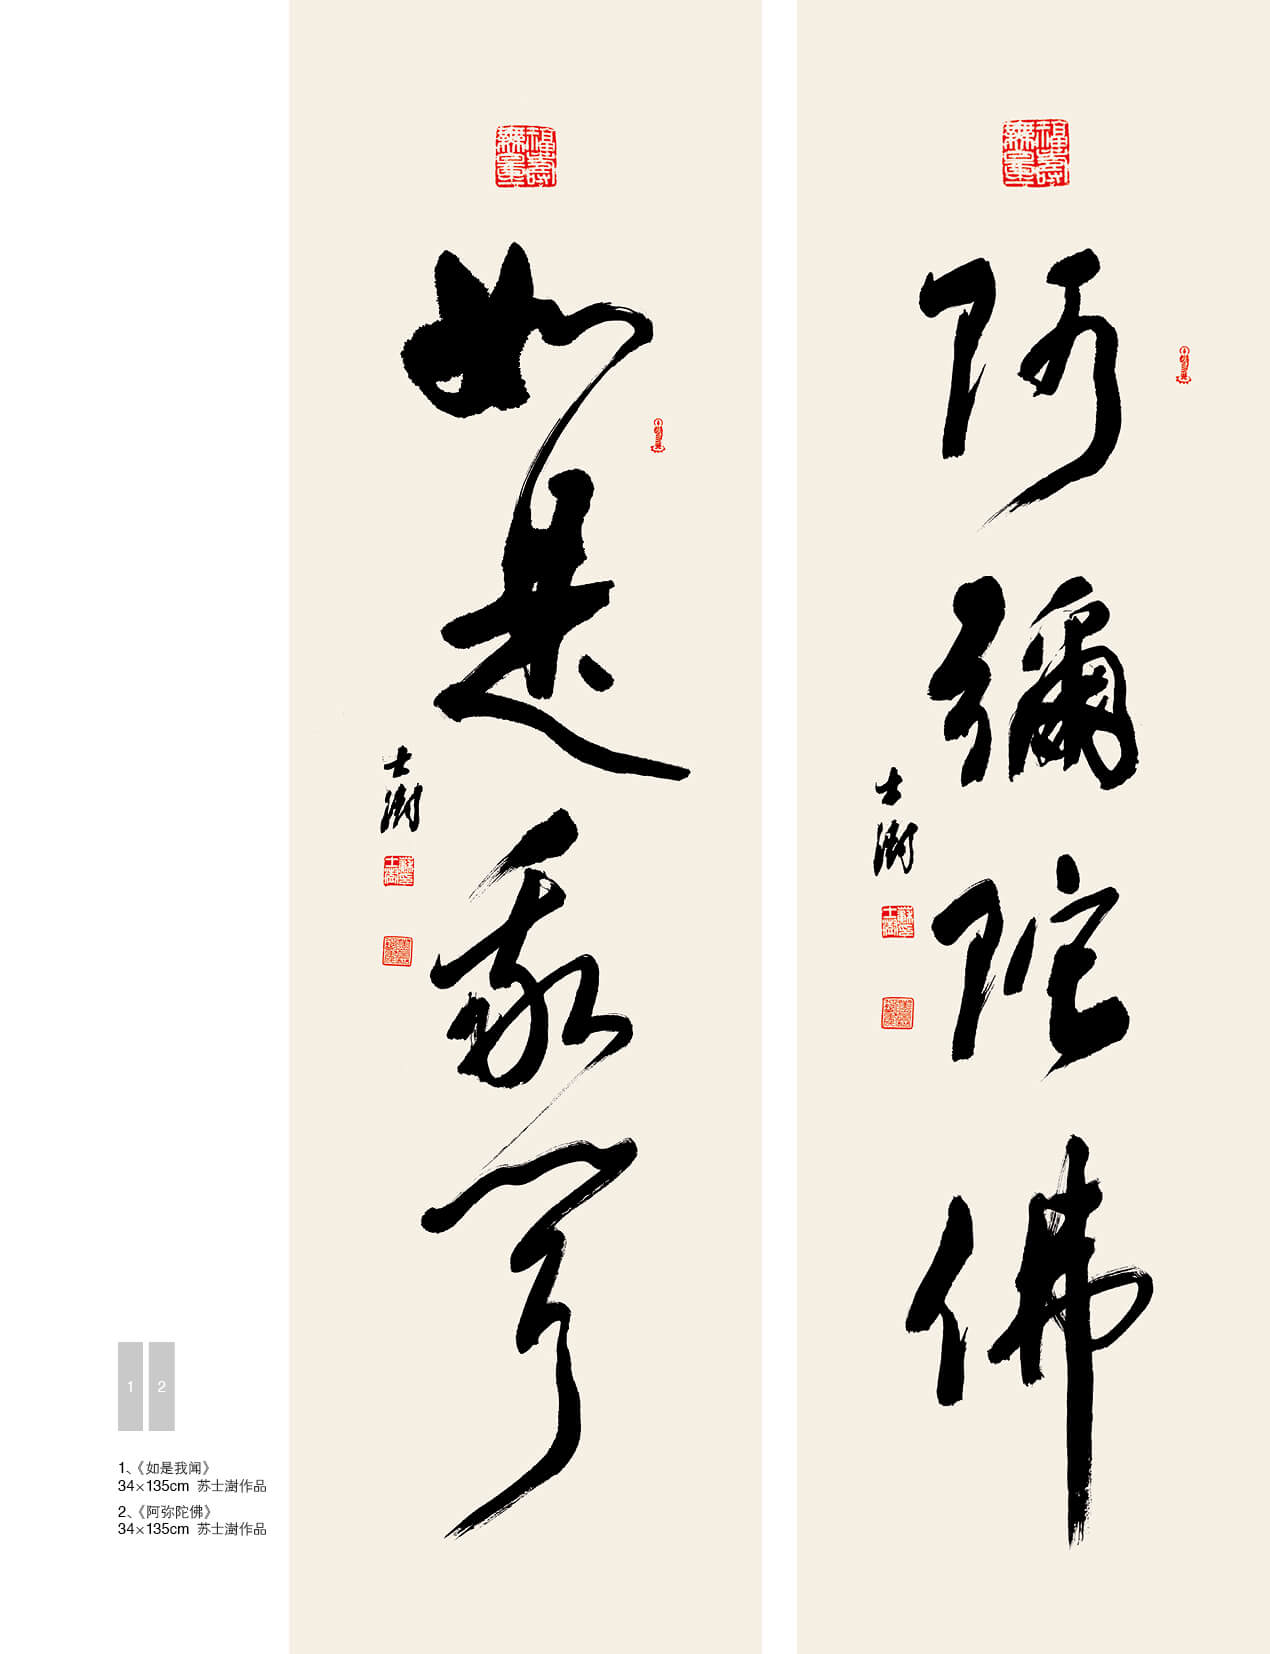 如是我闻
士澍
阿彌陀佛
士澍
1 2
1、《如是我闻》
34×135cm 苏士澍作品
2、《阿弥陀佛》
34×135cm 苏士澍作品